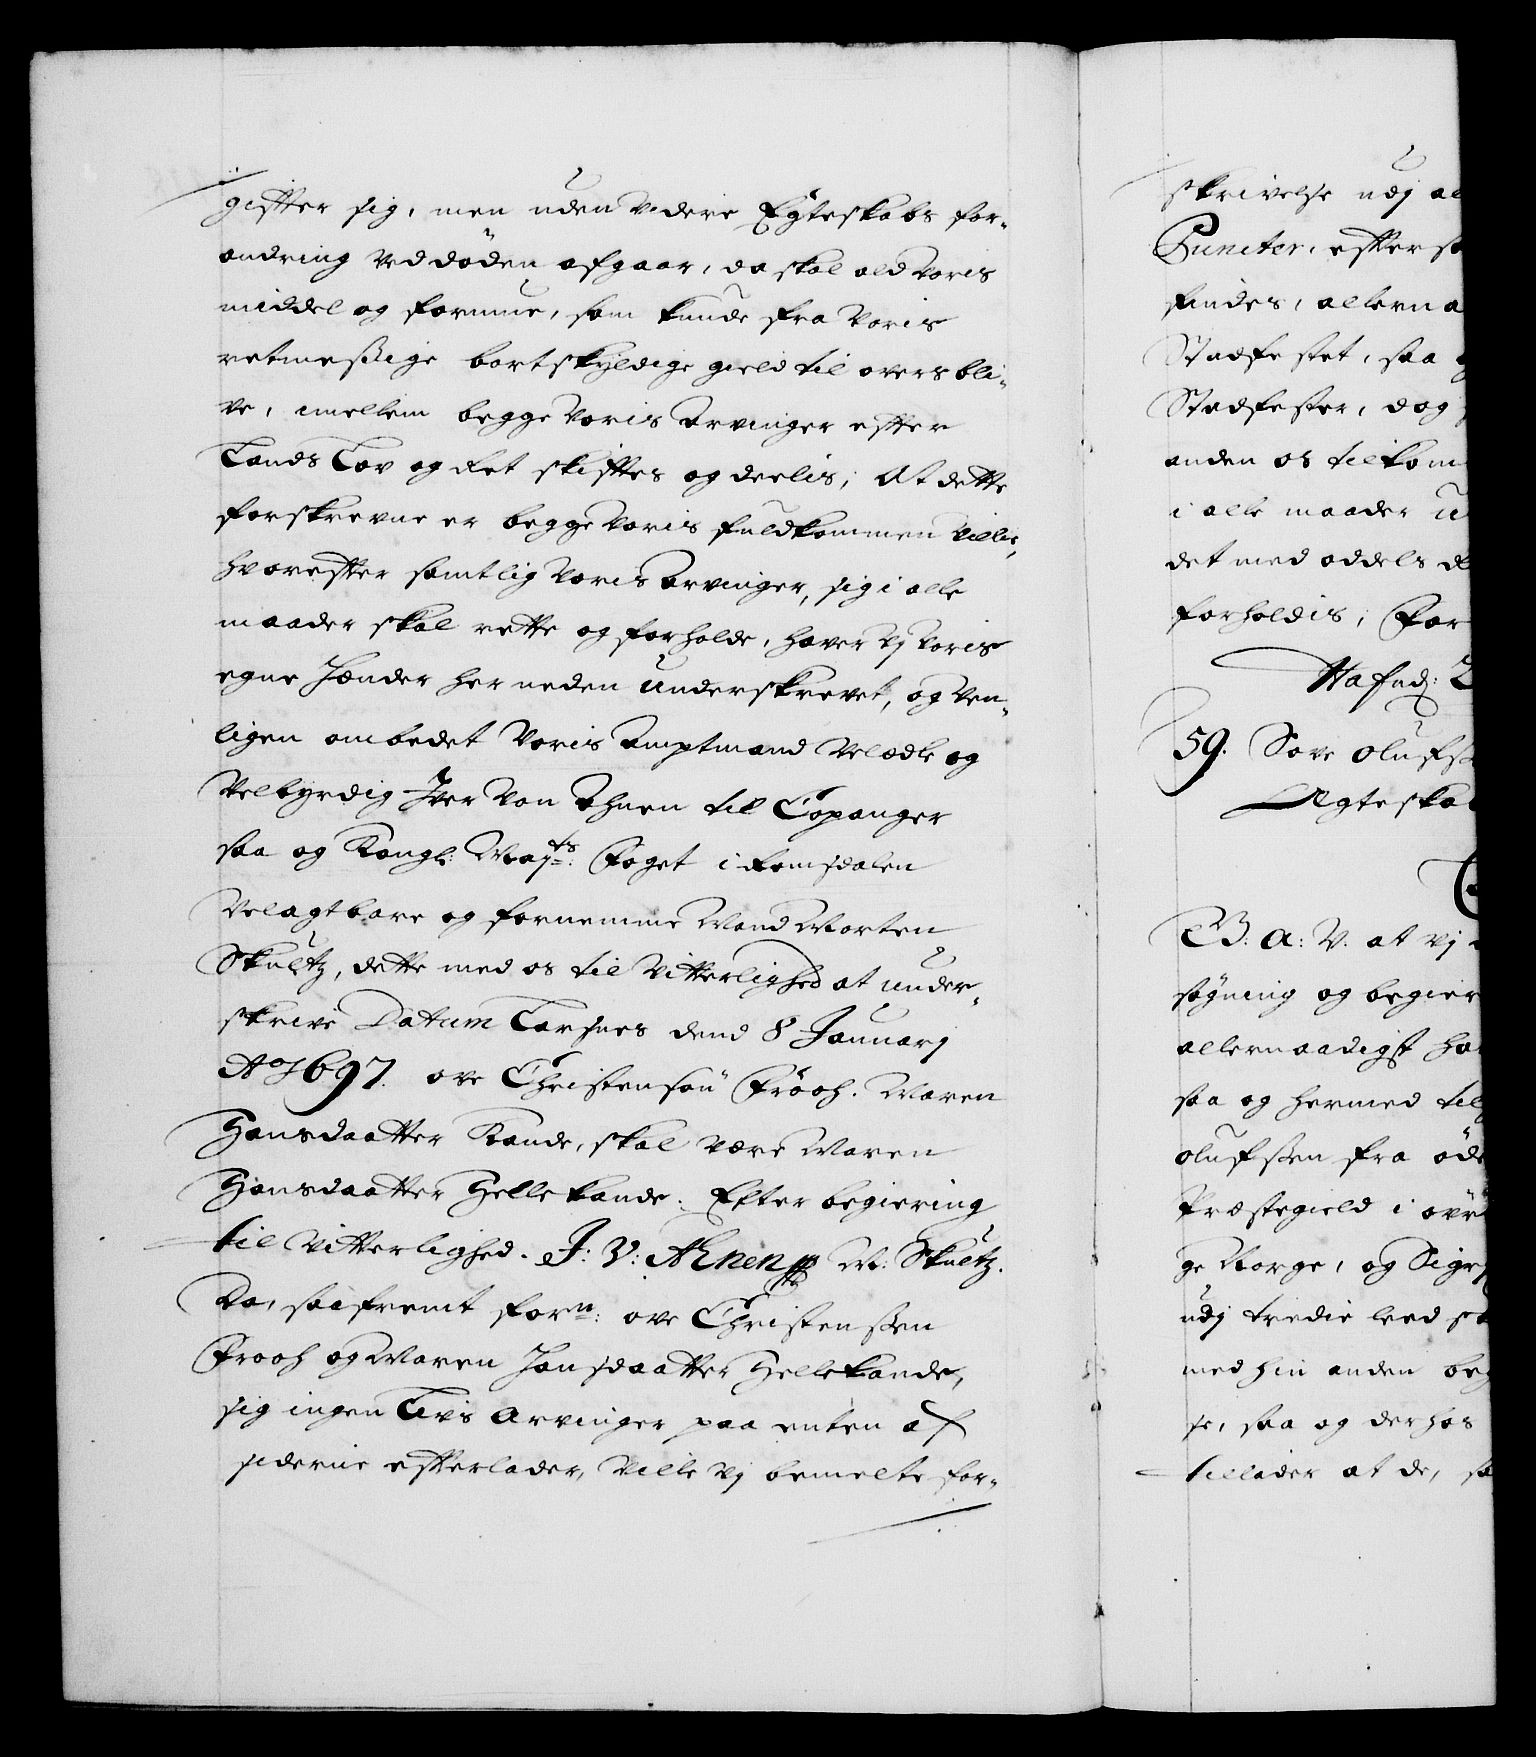 gifter sig, men uden videre Egteskabs for-
andring ved døden afgaar, da skal ald voris
middel og formue, som kunde fra voris
retmessige bortskyldige gield til overs bli-
ve, imellem begge voris Arvinger efter
Lands Lov og Ret skiftes og deelis; At dette
forskrevne er begge voris fuldkommen villie,
hvorefter samtlig voris Arvinger, sig i alle
maader skal rette og forholde, haver vj voris
egne Hænder her neden underskrevet, og ven-
ligen ombedet voris Amptmand Velædle og
Velbyrdig Iver von Ahnen til Copanger
saa og Kongl: Mayts: Foget i Romsdalen
Velagtbare og fornemme Mand Morten
Skultz, dette med os til Vitterlighed at under-
skrive Datum dend 8 Januarj
Ao 1697. Ove Christensøn Frøch. Maren
Hansdaatter Kande, skal være Maren
Hansdaatter Hellekande. Efter begiering
til Vitterlighed. J: V: Ahnen M: Skultz.
Da, saafremt forn: Ove Christenssen
Frooch og Maren Hansdaatter Hellekande,
sig ingen Livs Arvinger paa enten af
siderne efterlader, Ville Vj bemelte for-
skrivelse udj al
Puncter, efter so
findes, allerna
Stadfestet, saa
Stadfester, dog
anden os tilkom
i alle maader u
det med oddels
forholdis; For
Hafnd: 2
59. Sove Olufs
Ægteska
G: A: V. at vj
søgning og begier
allernaadigst ha
saa og hermed til
Olufssen fra øde
Præstegield i
ge Norge, og Sigr
udj tredie leed
med hin anden beg
se, saa og derhos
tillader at de, sa